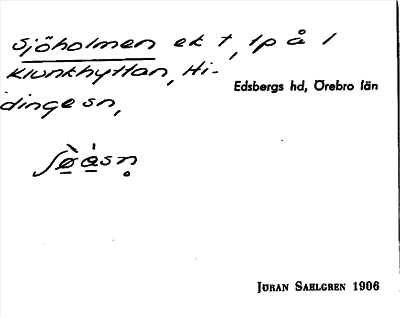 Sjöholmen ek t, 1p å 1
Klunkhyttan, Hi-
dinge sn,
Edsbergs hd, Örebro län
JÖRAN SAHLGREN 1906